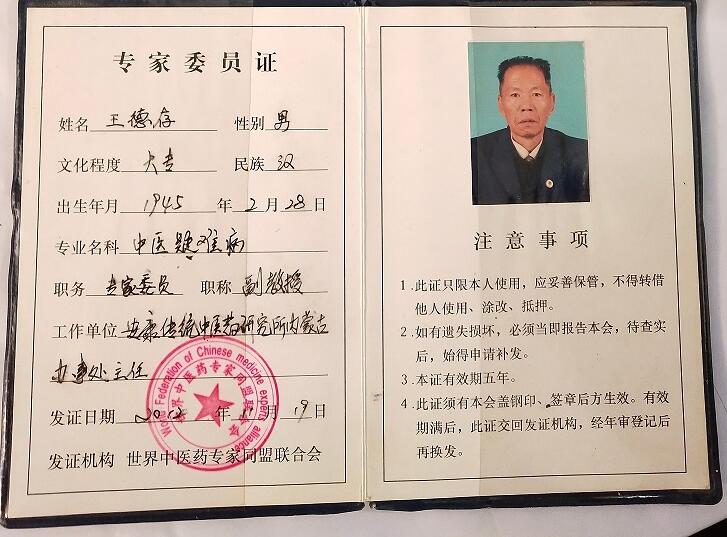 专家委员证
姓名 王德存 性别 男
文化程度 大专 民族 汉
出生年月 1945 年 2 月 28 日
专业名科 中医疑难病
职务 专家委员 职称 副教授
工作单位 安康传统中医药研究所内蒙古
办事处主任
发证日期 年 月 19 日
发证机构 世界中医药专家同盟联合会
World Federation of Chinese medicine expert alliance
世界中医药专家同盟联合会
注意事项
1．此证只限本人使用，应妥善保管，不得转借
他人使用、涂改、抵押。
2．如有遗失损坏，必须当即报告本会，待查实
后，始得申请补发。
3．本证有效期五年。
4．此证须有本会盖钢印、签章后方生效。有效
期满后，此证交回发证机构，经年审登记后
再换发。